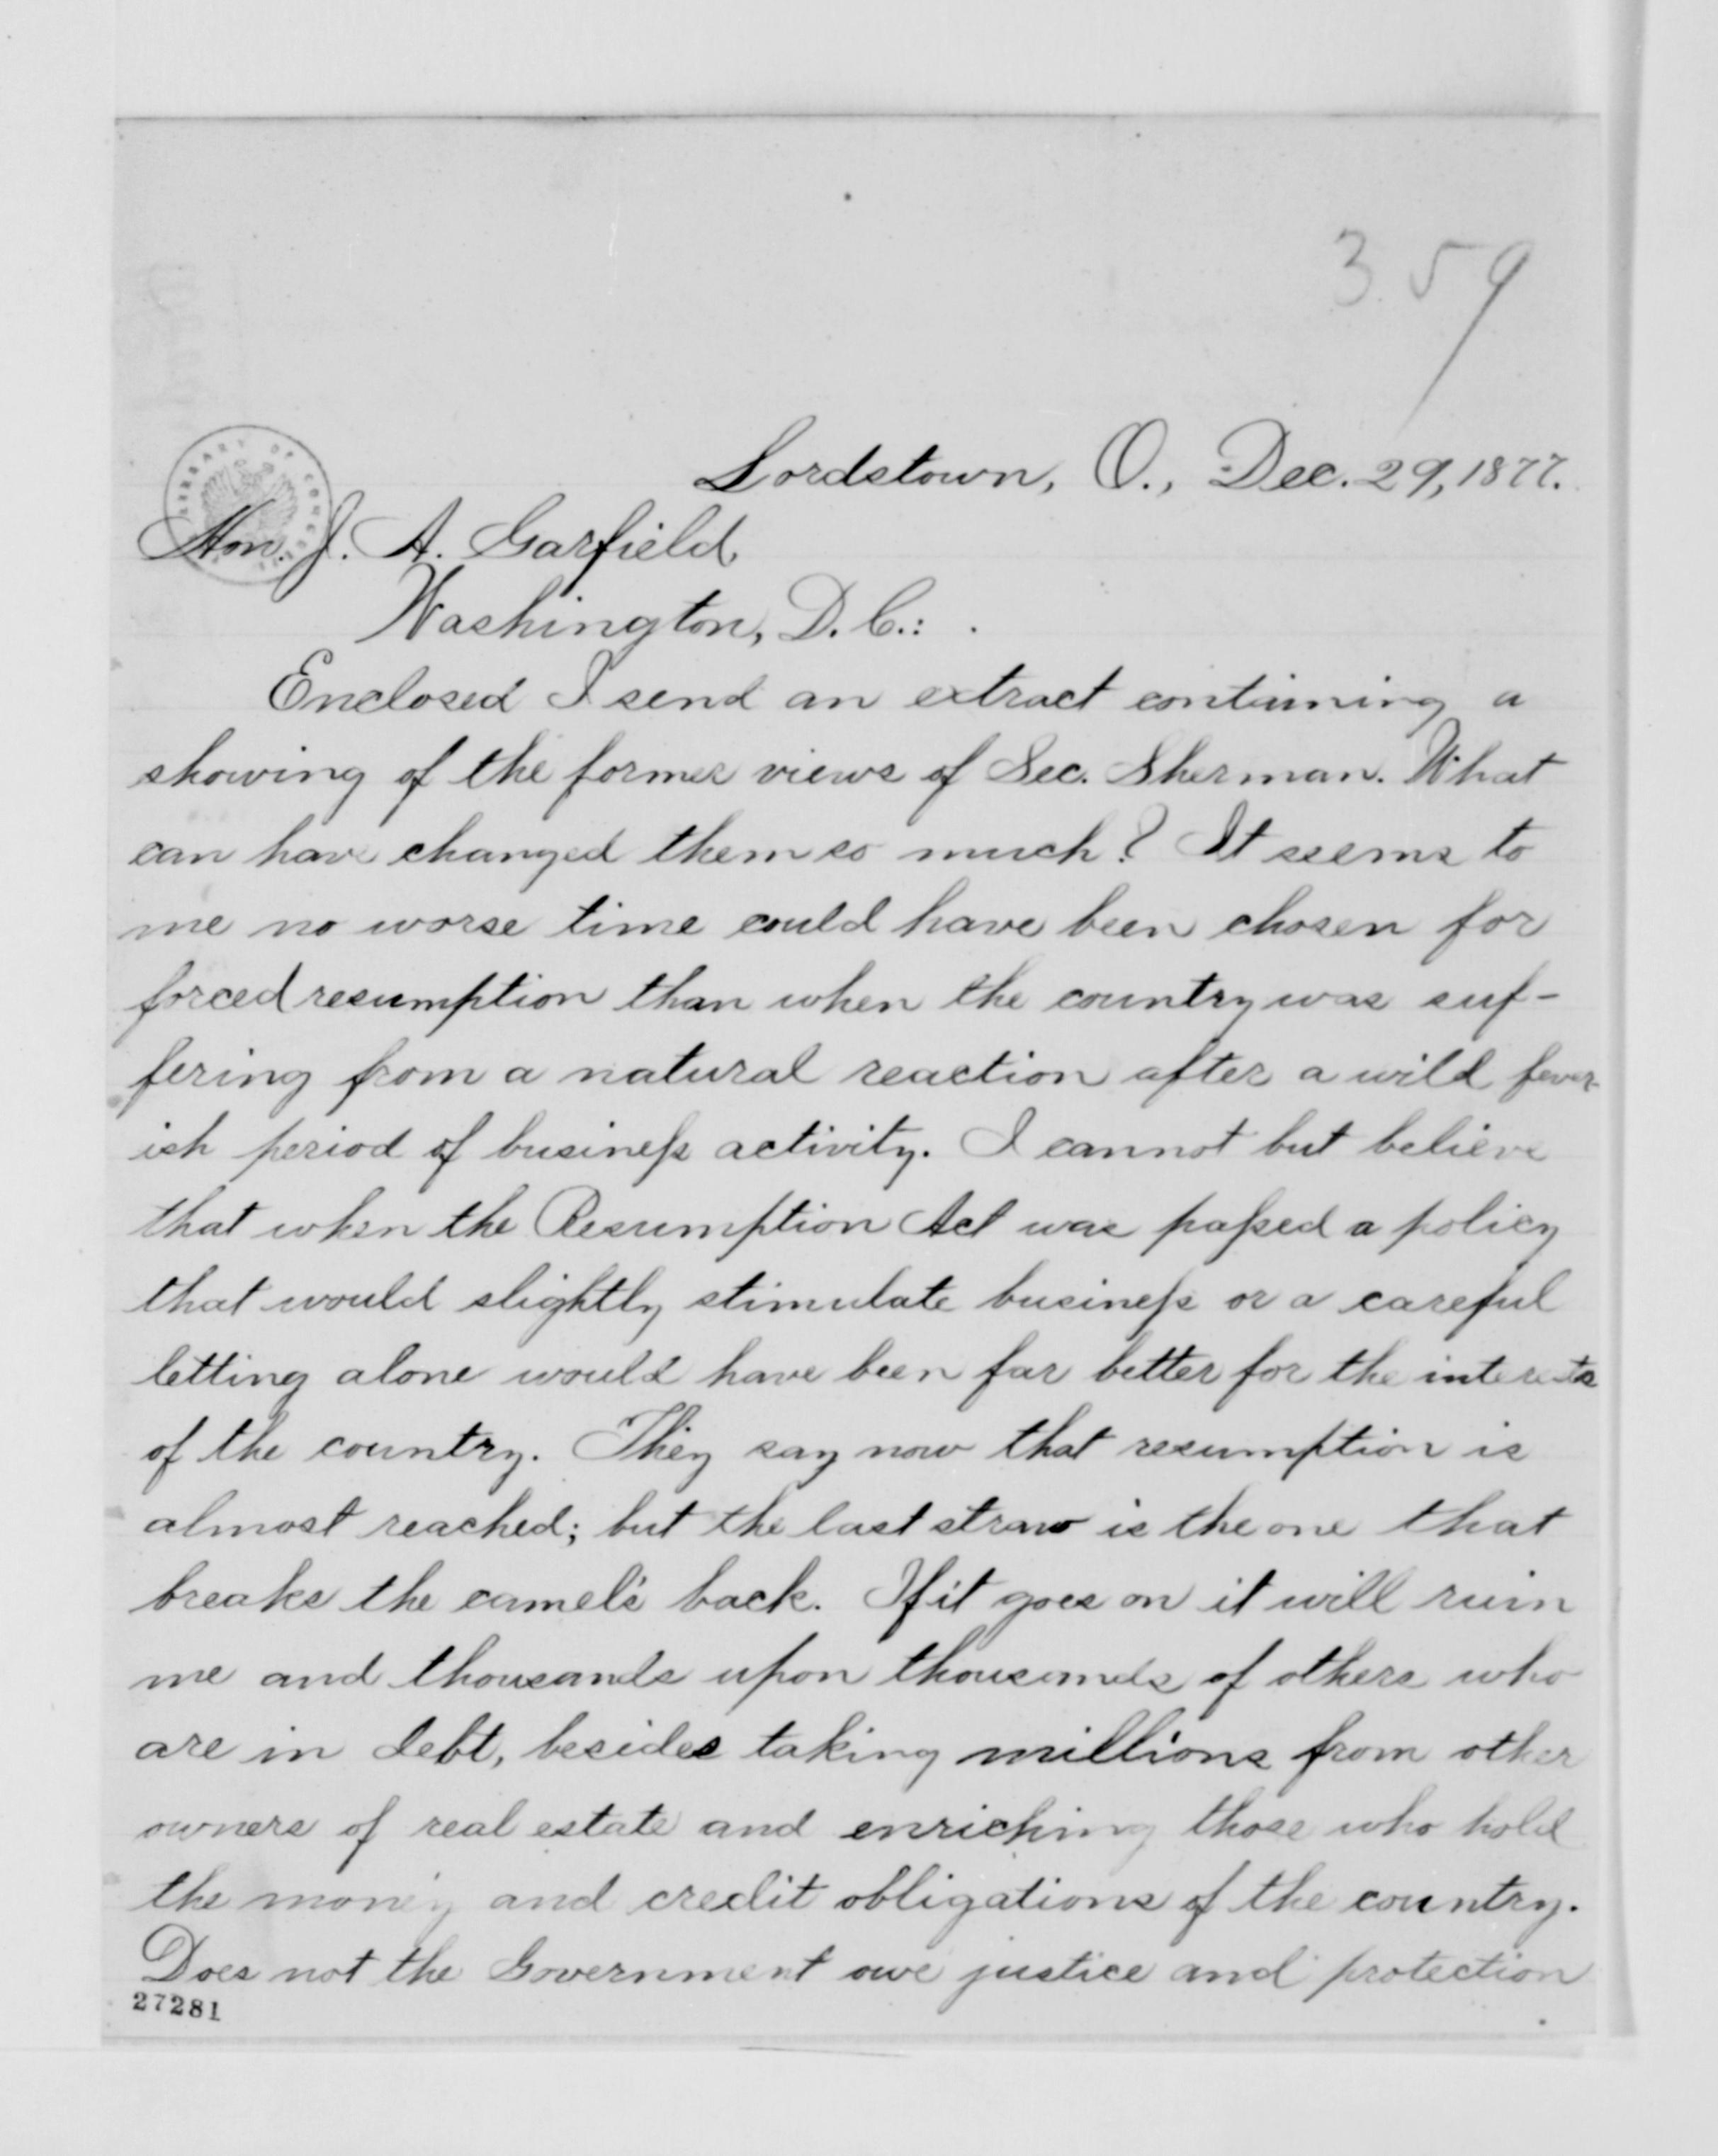 359
Lordstown, O., Dec. 29, 1877.
LIBRARY OF CONGRESS
Hon. J. A. Garfield,
Washington, D.C.:
Enclosed I send an extract containing a
showing of the former views of Sec. Sherman. What
can have changed them so much? It seems to
me no worse time could have been chosen for
forced resumption than when the country was suf-
fering from a natural reaction after a wild fever-
ish period of business activity. I cannot but believe
that when the Resumption Act was passed a policy
that would slightly stimulate business or a careful
letting alone would have been far better for the interests
of the country. They say now that resumption is
almost reached; but the last straw is the one that
breaks the camel's back. If it goes on it will ruin
me and thousands upon thousands of others who
are in debt, besides taking millions from other
owners of real estate and enriching those who hold
the money and credit obligations of the country.
Does not the Government owe justice and protection
27281